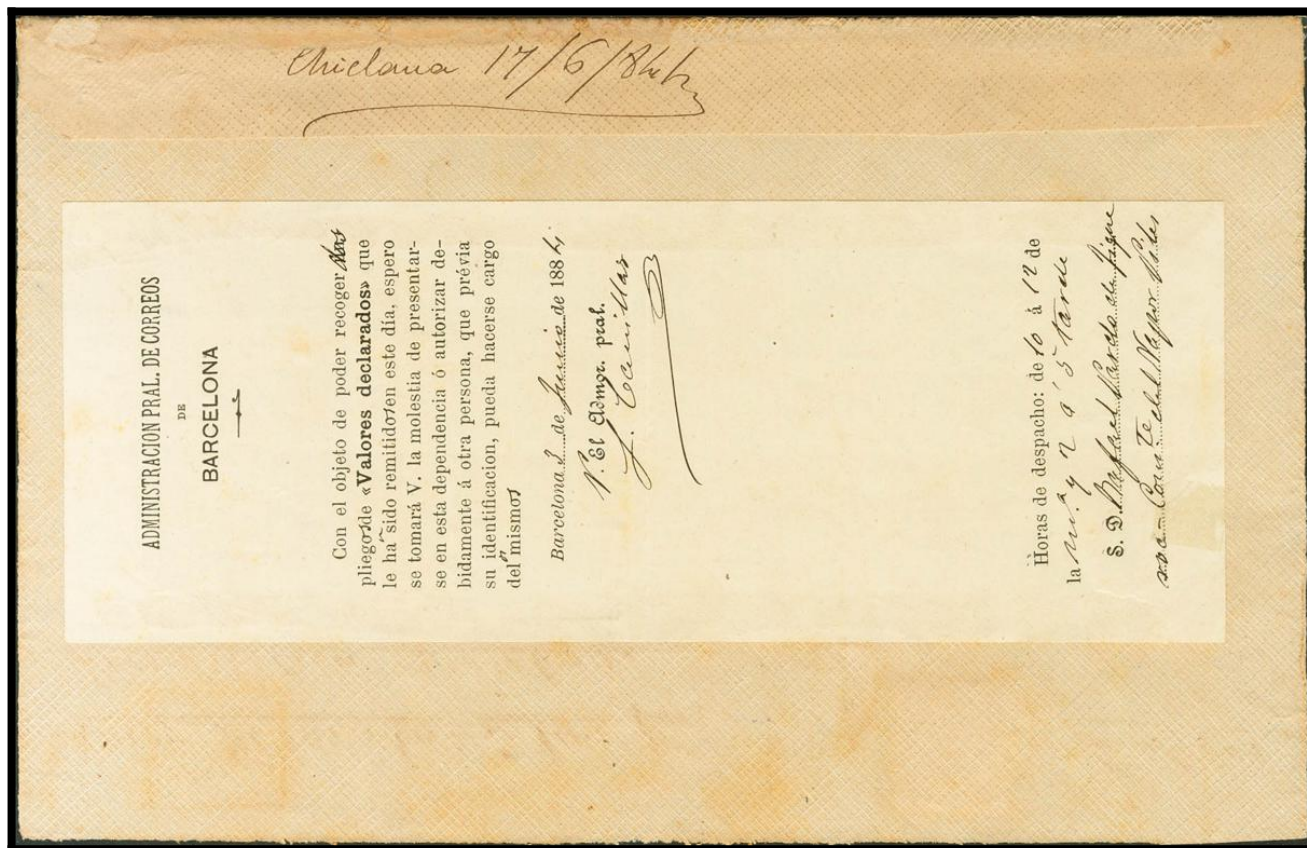 Chiclana 17/6/84
ADMINISTRACION PRAL. DE CORREOS
DE
BARCELONA
Con el objeto de poder recoger dos
pliegos de «Valores declarados» que
le han sido remitidos en este dia, espero
se tomará V. la molestia de presentar-
se en esta dependencia ó autorizar de-
bidamente á otra persona, que prévia
su identificacion, pueda hacerse cargo
del mismos
Barcelona 3 de Junio de 1884
P. El Admor. pral.
Horas de despacho: de 10 á 12 de
la mª y 2 á 5 tarde
S. D. Rafael Pardo de Figue
roa Comte del Vapor